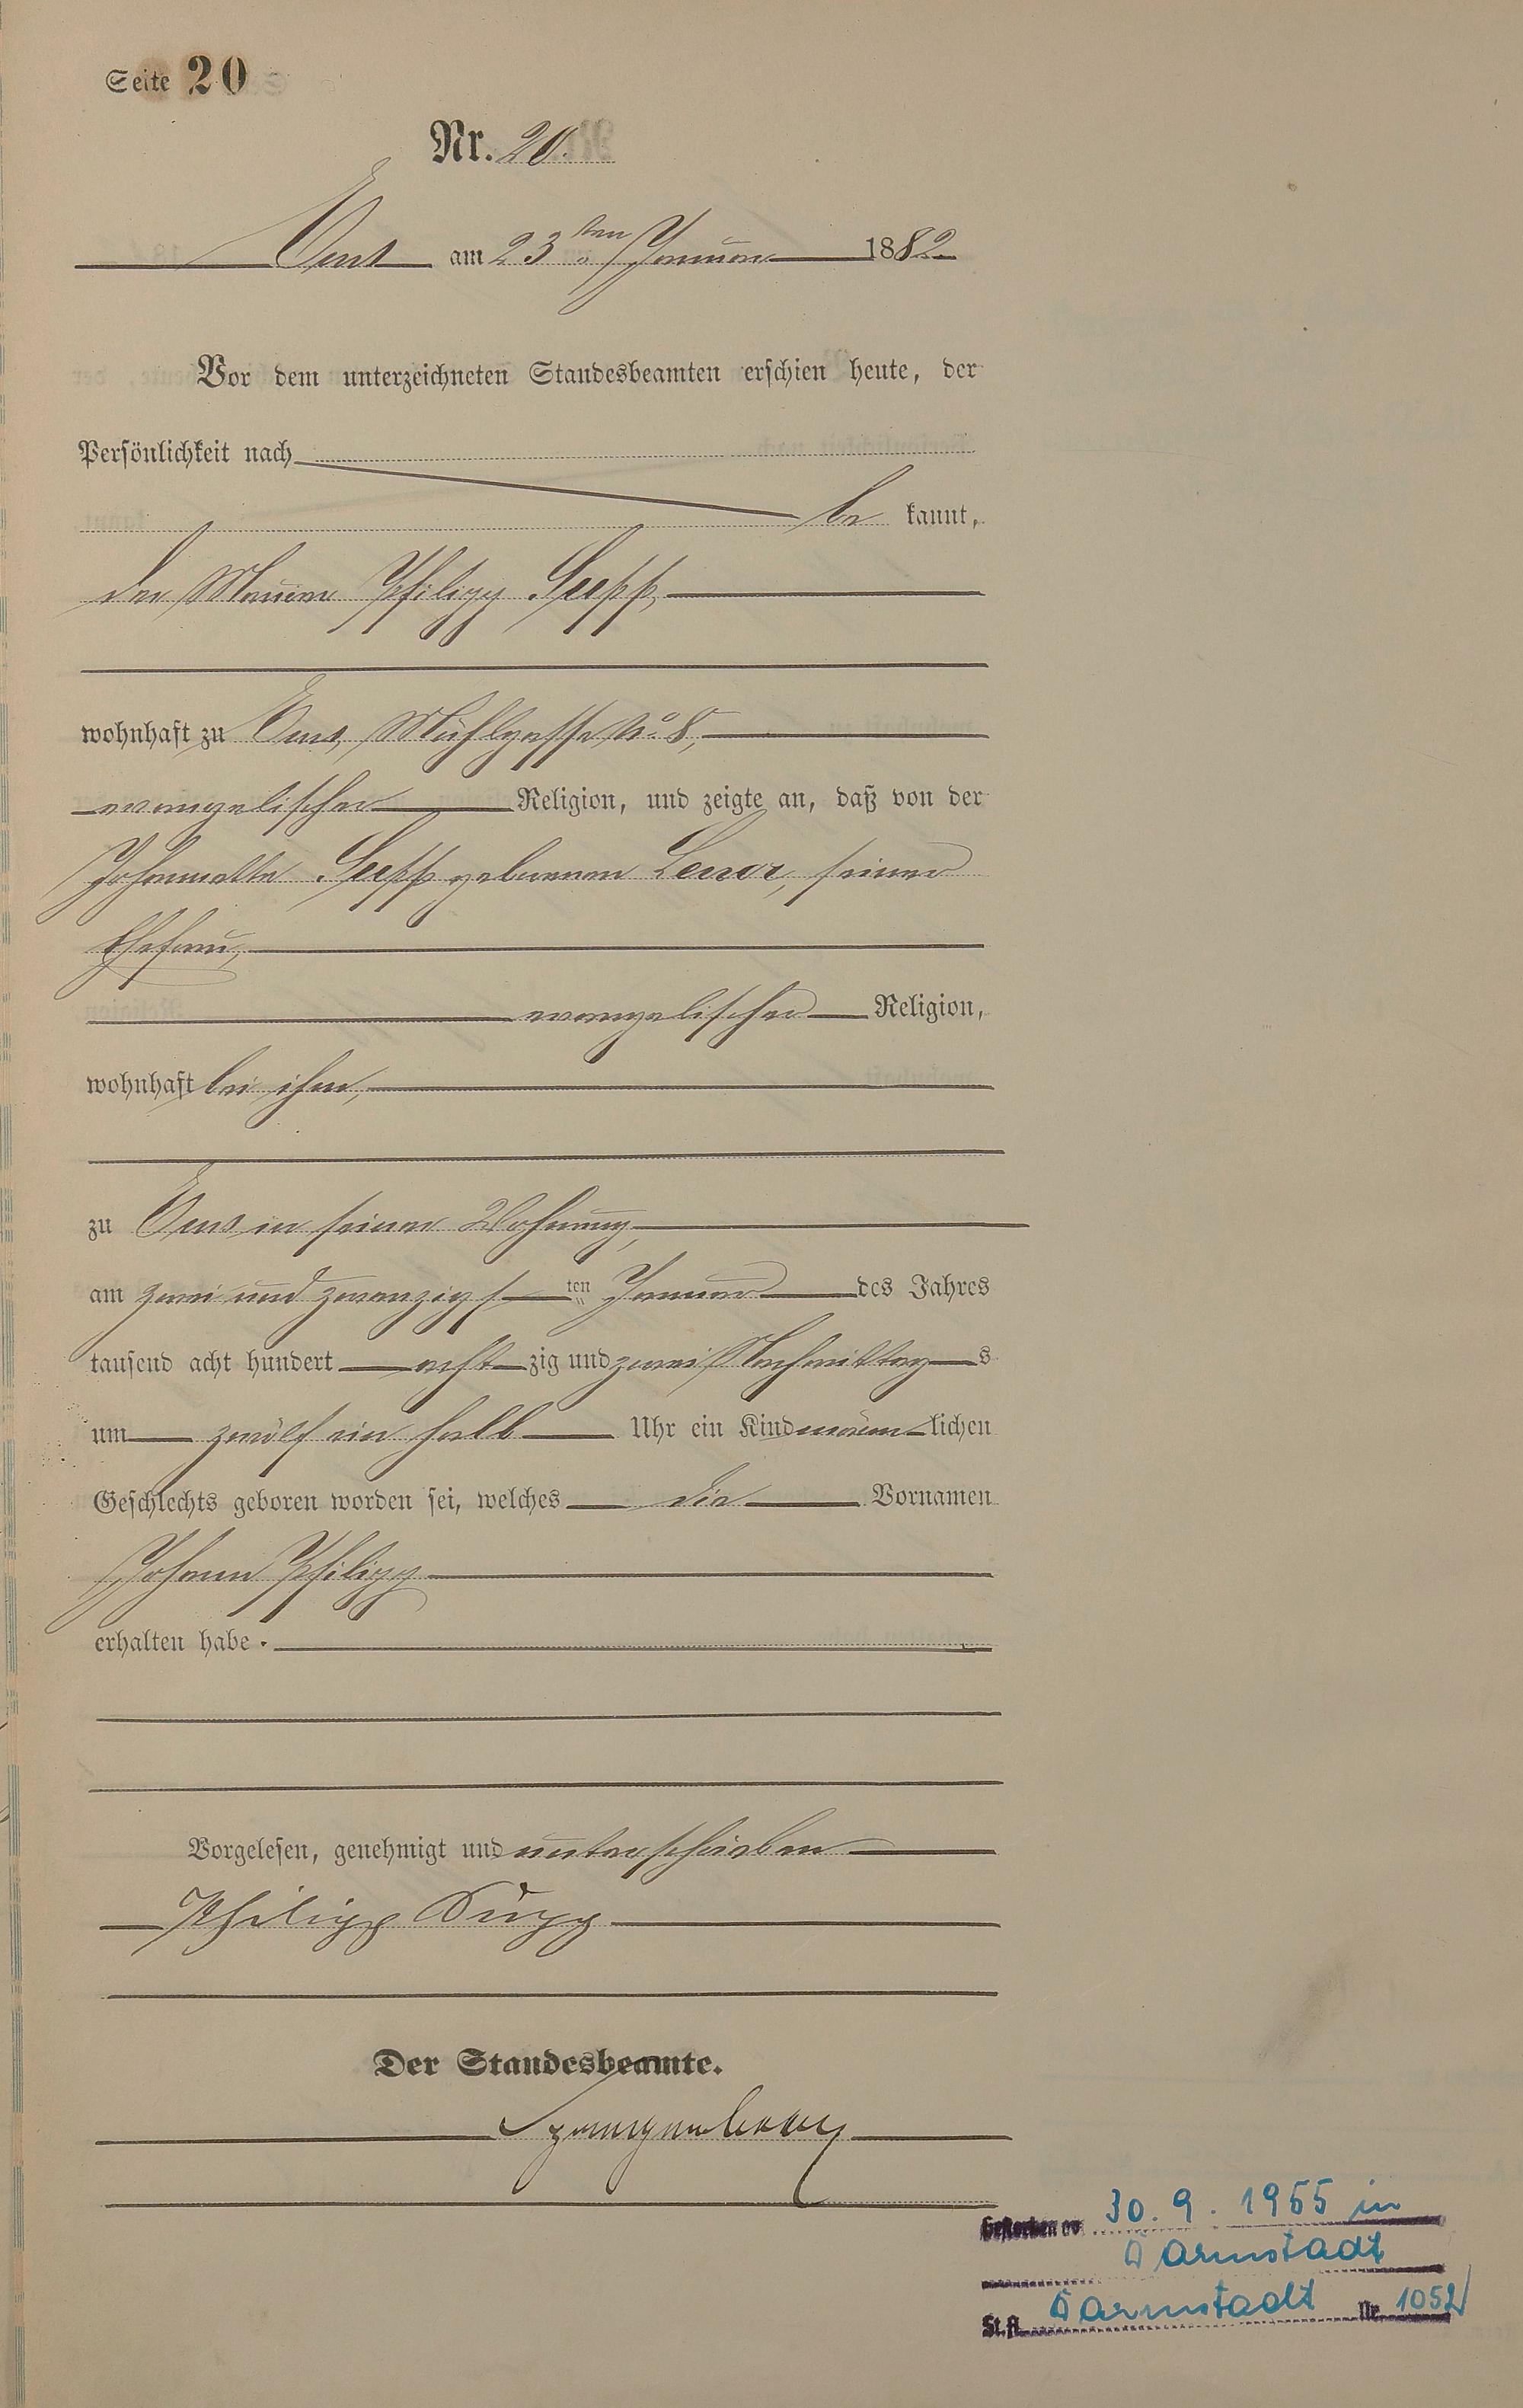 Seite 20
Nr. 20.
Ems am 23ten Januar 1882
Vor dem unterzeichneten Standesbeamten erschien heute, der
Persönlichkeit nach
be kannt,
der Maurer Philipp Supp,
wohnhaft zu Ems, Mühlgasse No. 8,
evangelischer Religion, und zeigte an, daß von der
Johannette Supp geborenen Lenor, seiner
Ehefrau,
evangelischer Religion,
wohnhaft bei ihm,
zu Ems in seiner Wohnung,
am zwei und zwanzigsten Januar des Jahres
tausend acht hundert acht zig und zwei Nachmittags
um zwölf ein halb Uhr ein Kind männlichen
Geschlechts geboren worden sei, welches die Vornamen
Johann Philipp
erhalten habe.
Vorgelesen, genehmigt und unterschrieben
Philipp Supp
Der Standesbeamte.
Spangenberg
Gestorben am 30.9.1955 in
Darmstadt
St.A. Darmstadt Nr. 1052